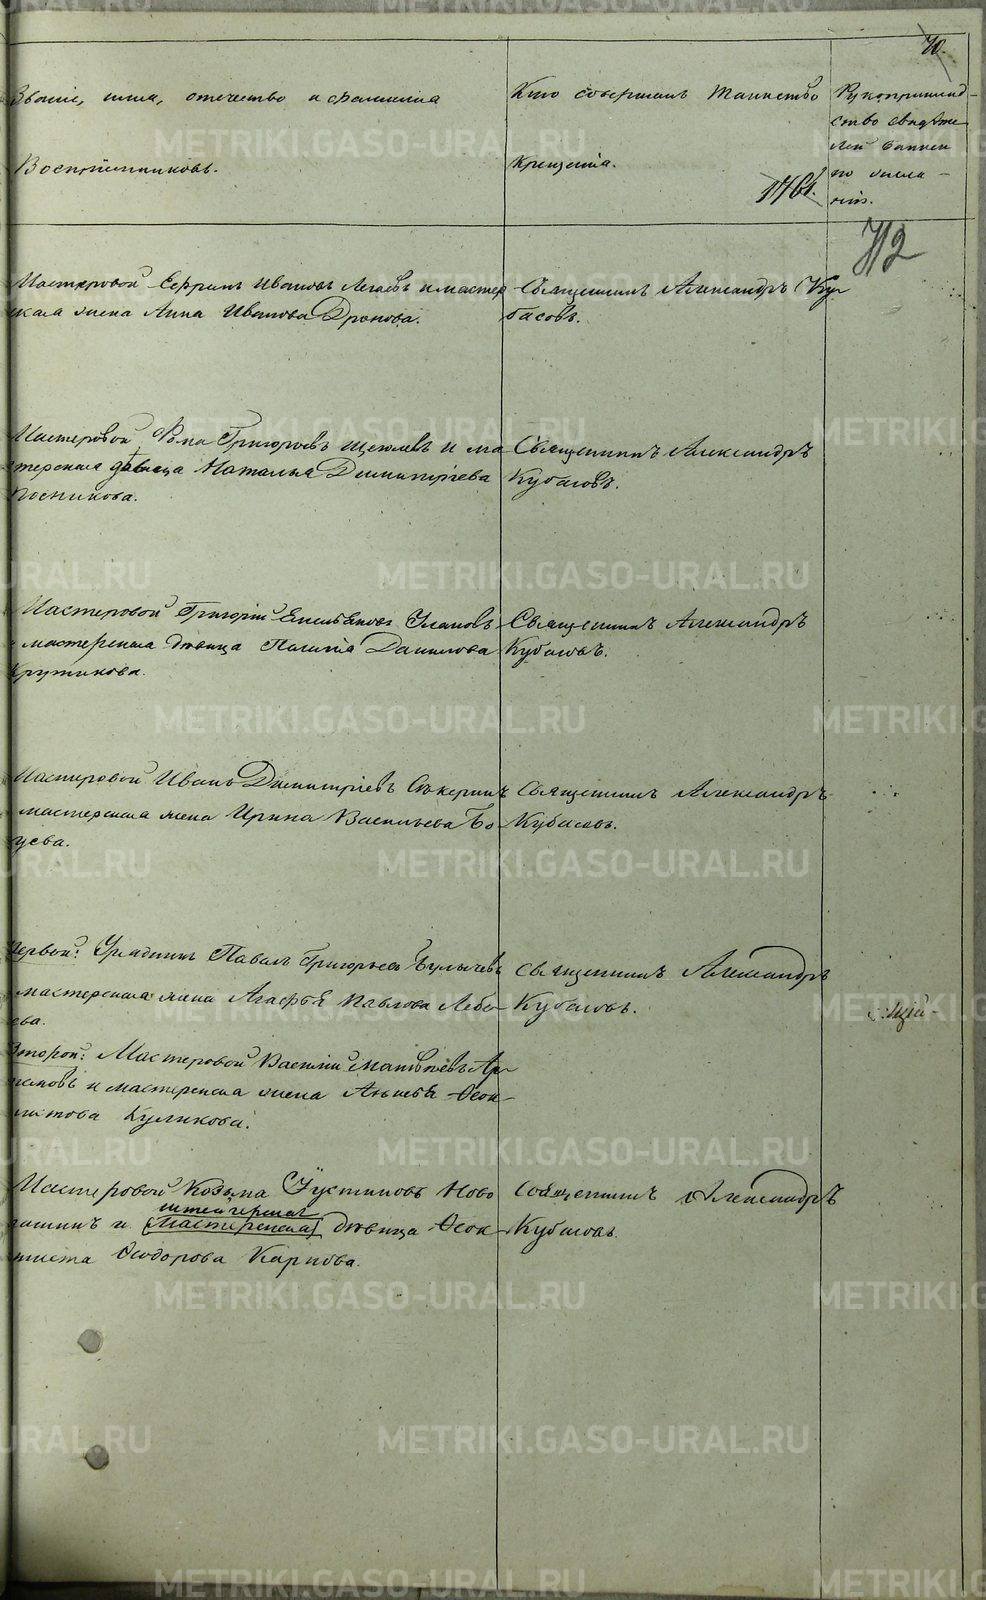 70.
Званіе, имя, отечество и фамилія
Воспріемниковъ.
Кто совершалъ таинство
крещенія.
Рукоприклад-
ство свидѣте
лей записи
по жела-
нію.
1761.
712
Мастеровой Ефримъ Ивановъ и мастер
ская жена Анна Иванова Дронова.
Священникъ Александръ Ку
басовъ.
Мастеровой Фома Григорьевъ и ма
терская дѣвица Наталья Димитріева
Посникова.
Священникъ Александръ
Кубасовъ.
Мастеровой Григорій Емельяновъ Улановъ
мастерская дѣвица Данилова
Кругликова.
Священникъ Александръ
Кубасовъ.
Мастеровой Иванъ Димитріевъ Сѣкеринъ
мастерская жена Ирина Васильева Бо
уева.
Священникъ Александръ
Кубасовъ.
Первой: Урядникъ Павелъ Григорьевъ Булычевъ
мастерская жена Агафья Павлова Лебе
ева.
Священникъ Александръ
Кубасовъ.
Второй: Мастеровой Василій Матвѣевъ Ар
и мастерская жена Ѳеок
листова Куликова.
Мастеровой Козьма Устиновъ Ново
пашинъ и мастерская дѣвица Ѳеок
тиста Ѳеодорова Карпова.
штейгерская
Священникъ Александръ
Кубасовъ.
METRIKI.GASO-URAL.RU